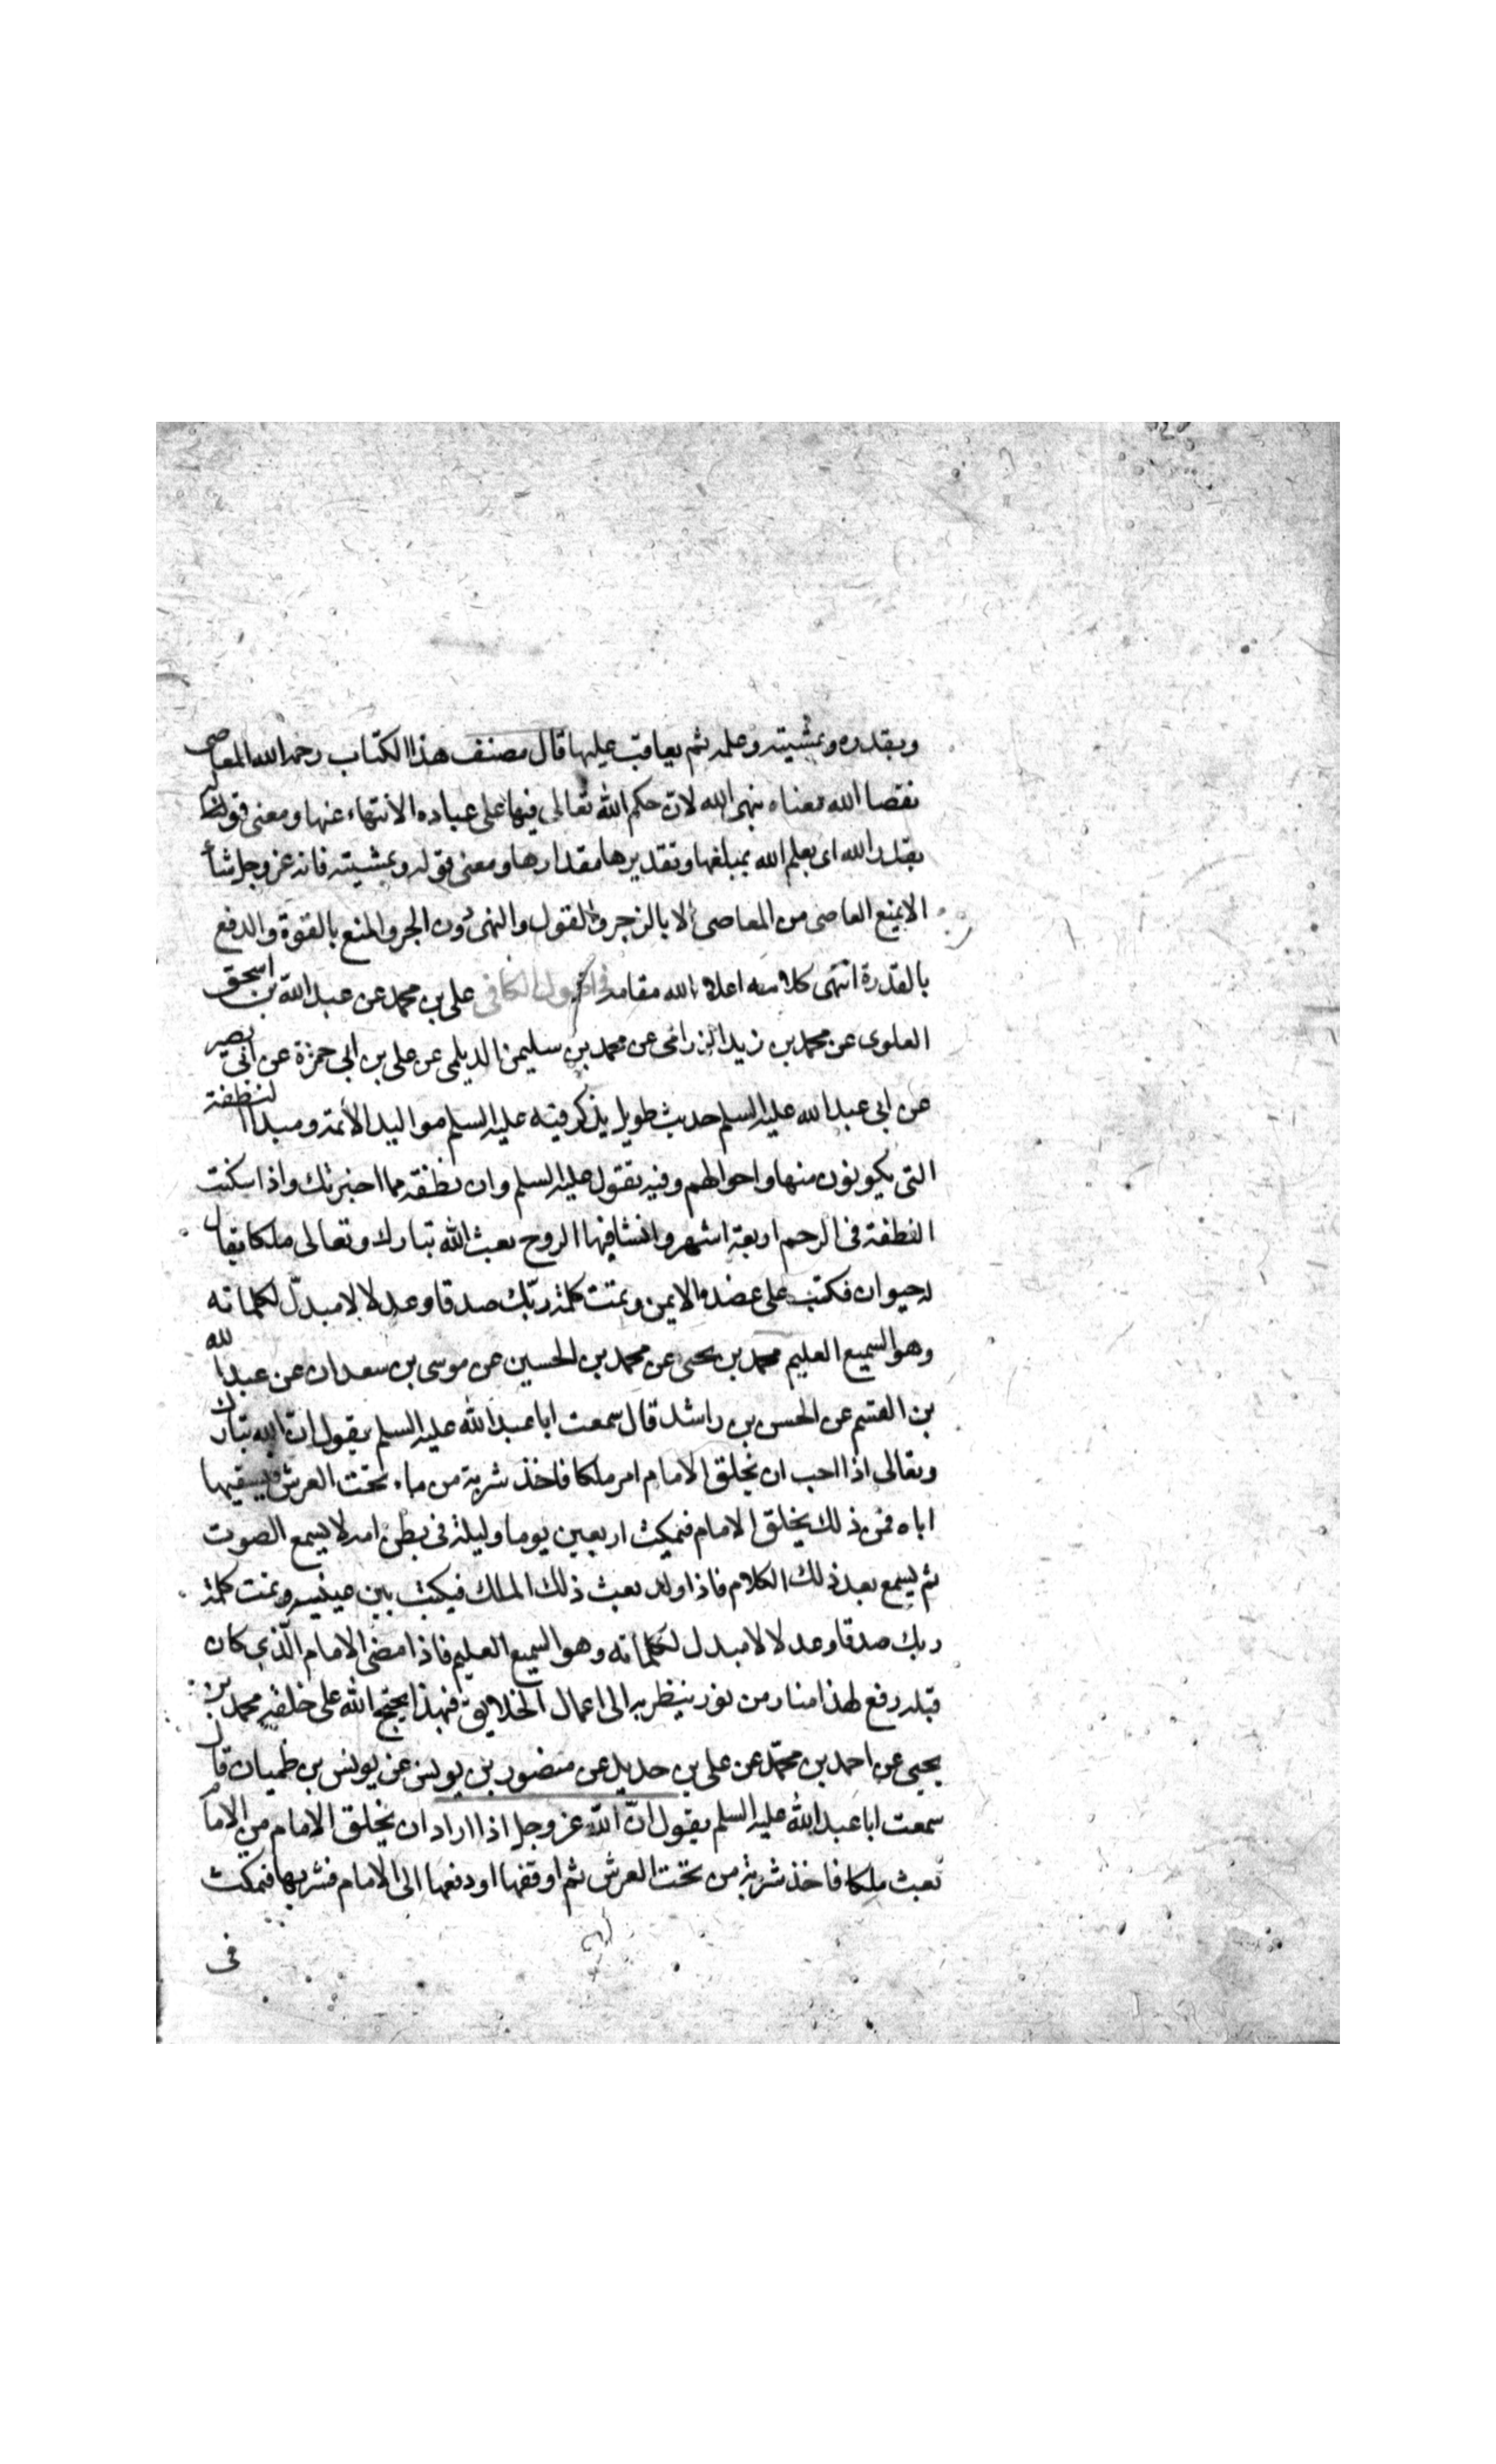 وبقدره وبمشيته وعلمه ثم يعاقب عليها قال مصنف هذا الكتاب رحمه الله المعاصى
بقضا الله معناه بنهى الله لان حكم الله تعالى فيها على عباده الانتهاء عنها ومعنى قوله
بقدر الله اى بعلم الله بمبلغها وتقديرها مقدارها ومعنى قوله وبمشيته فانه عز وجل شأ
الا يمنع العاصى من المعاصى الا بالزجر والقول والنهى دون الجبر والمنع بالقوة والدفع
بالقدرة انتهى كلامه اعلا الله مقامه فى اصول الكافى على بن محمد عن عبد الله بن اسحق
العلوى عن محمد بن زيد الزرامى عن محمد بن سليمن الديلمى عن على بن ابى حمزة عن ابى بصير
عن ابى عبد الله عليه السلم حديث طويل يذكر فيه عليه السلم مواليد الأئمة ومبدا النطفة
التى يكونون منها واحوالهم وفيه يقول عليه السلم وان نطفته مما اخبرتك واذا سكنت
النطفة فى الرحم اربعة اشهر وانشا فيها الروح بعث الله تبارك وتعالى ملكا يقال
له حيوان فكتب على عضده الايمن وتمت كلمة ربّك صدقا وعدلا لا مبدّل لكلماته
وهو السميع العليم محمد بن يحيى عن محمد بن الحسين عن موسى بن سعدان عن عبد الله
بن القسم عن الحسن بن راشد قال سمعت ابا عبد الله عليه السلم يقول انّ الله تبارك
وتعالى اذا احب ان يخلق الامام امر ملكا فاخذ شربة من ماء تحت العرش فيسقيها
اباه فمن ذلك يخلق الامام فيمكث اربعين يوما وليلة فى بطن امه لا يسمع الصوت
ثم يسمع بعد ذلك الكلام فاذا ولد بعث ذلك الملك فيكتب بين عينيه وتمت كلمة
ربك صدقا وعدلا لا مبدل لكلماته وهو السميع العليم فاذا مضى الامام الّذى كان
قبله رفع لهذا منار من نور ينظر به الى اعمال الخلائق فبهذا يحتج الله على خلقه محمد بن
يحيى عن احمد بن محمّد عن على بن حديد عن منصور بن يونس عن يونس بن ظميان قال
سمعت ابا عبد الله عليه السلم يقول انّ الله عز وجل اذا اراد ان يخلق الامام من الامام
بعث ملكا فاخذ شربة من تحت العرش ثم اوقفها او دفعها الى الامام فشربها فيمكث
فى